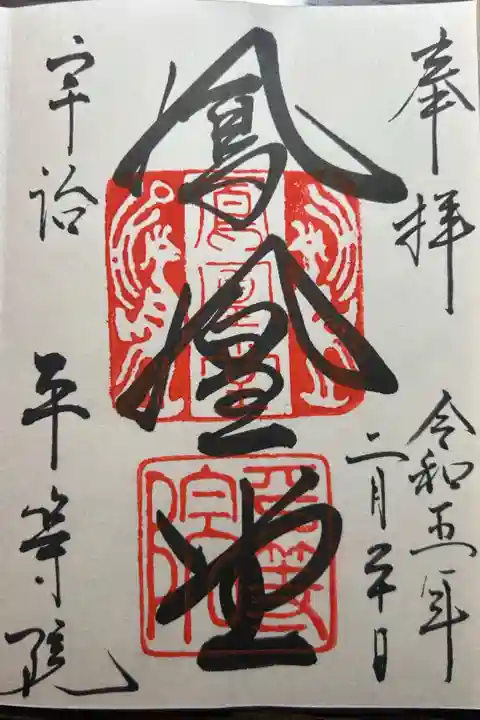 奉拝
令和五年
二月二十日
鳳凰堂
宇治
平等院
鳳凰堂
平等院